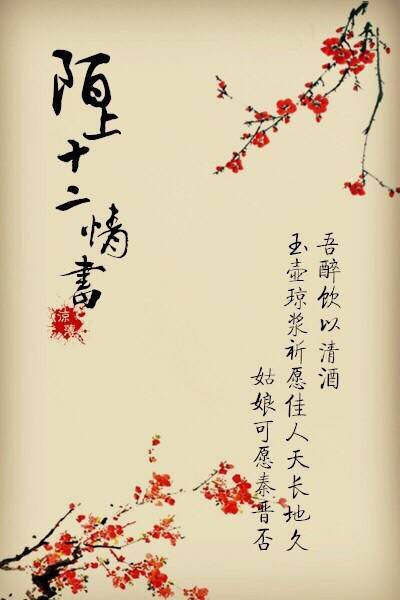 陌上十二情書
涼薄
吾醉饮以清酒
玉壶琼浆祈愿佳人天长地久
姑娘可愿秦晋否